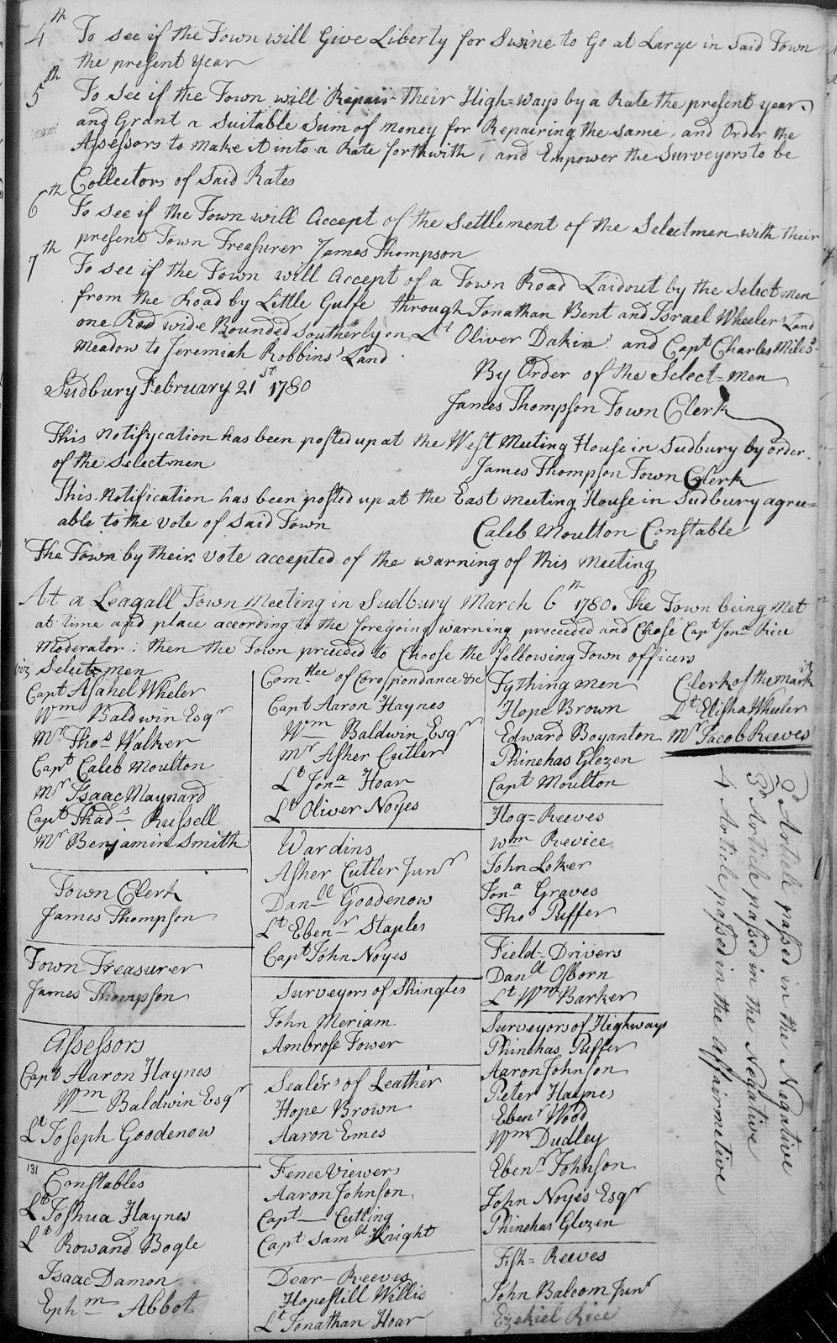 4th To see if the Town will Give Liberty for Swine to Go at Large in Said Town
the present Year
5th To see if the Town will Repair their High=ways by a Rate the present year
and Grant a Suitable Sum of money for Repairing the same, and Order the
Assessors to make it into a Rate forthwith, and Empower the Surveyors to be
Collectors of Said Rates
6th To see if the Town will Accept of the Settlement of the Selectmen with their
present Town Treasurer James Thompson
7th To see if the Town will Accept of a Town Road Laidout by the Select men
from the Road by Little Gulfe through Jonathan Bent and Israel Wheeler Land
one Rod wide Bounded Southerly on Lt Oliver Dakin and Capt Charles Miles
meadow to Jeremiah Robbins Land
By Order of the Select=men
Sudbury February 21st 1780
James Thompson Town Clerk
This Notifycation has been posted up at the West Meeting House in Sudbury by order
of the Selectmen
James Thompson Town Clerk
This Notification has been posted up at the East meeting House in Sudbury agree=
able to the Vote of Said Town
Caleb Moulton Constable
The Town by their vote accepted of the warning of this Meeting
At a Leagall Town Meeting in Sudbury March 6th 1780. The Town being Met
at time and place acording to the foregoing warning proceeded and Chose Capt Jona Rice
Moderator: then the Town prceeded to Choose the following Town officers
Selectmen
Capt Asahel Wheler
Wm Baldwin Esqr
Mr Thos Walker
Capt Caleb Moulton
Mr Isaac Maynard
Capt Thads Russell
Mr Benjamin Smith
Town Clerk
James Thompson
Town Treasurer
James Thompson
Assessors
Capt Aaron Haynes
Wm Baldwin Esqr
Lt Joseph Goodenow
131
Constables
Lt Joshua Haynes
Lt Rowand Bogle
Isaac Damon
Ephm Abbot
Comtee of Corespondance &c
Capt Aaron Haynes
Wm Baldwin Esqr
Mr Asher Cutler
Lt Jona Hoar
Lt Oliver Noyes
Wardins
Asher Cutler Junr
Danll Goodenow
Lt Ebenr Staples
Capt John Noyes
Surveyors of Shingles
John Meriam
Ambrose Tower
Sealers of Leather
Hope Brown
Aaron Emes
Fence Viewers
Aaron Johnson
Capt Cutting
Capt Samll Knight
Dear=Reeves
Hopestill Willis
Lt Jonathan Hoar
Tything men
Hope Brown
Edward Boyanton
Phinehas Glezen
Capt Moulton
Hog=Reeves
Wm Reevice
John Loker
Jona Graves
Thos Puffer
Field=Drivers
Danll Osborn
Lt Wm Barker
Surveyors of Highways
Phinehas Puffer
Aaron Johnson
Peter Haynes
Ebenr Wood
Wm Dudley
Ebenr Johnson
John Noyes Esqr
Phinehas Glezen
Fish=Reeves
John Balcom Junr
Ezekiel Rice
Clerk of the mark
Lt Elisha Wheeler
Mr Jacob Reeves
2d Article passed in the Negative
3d Article passed in the Negative
4 Article passed in the affairmetive